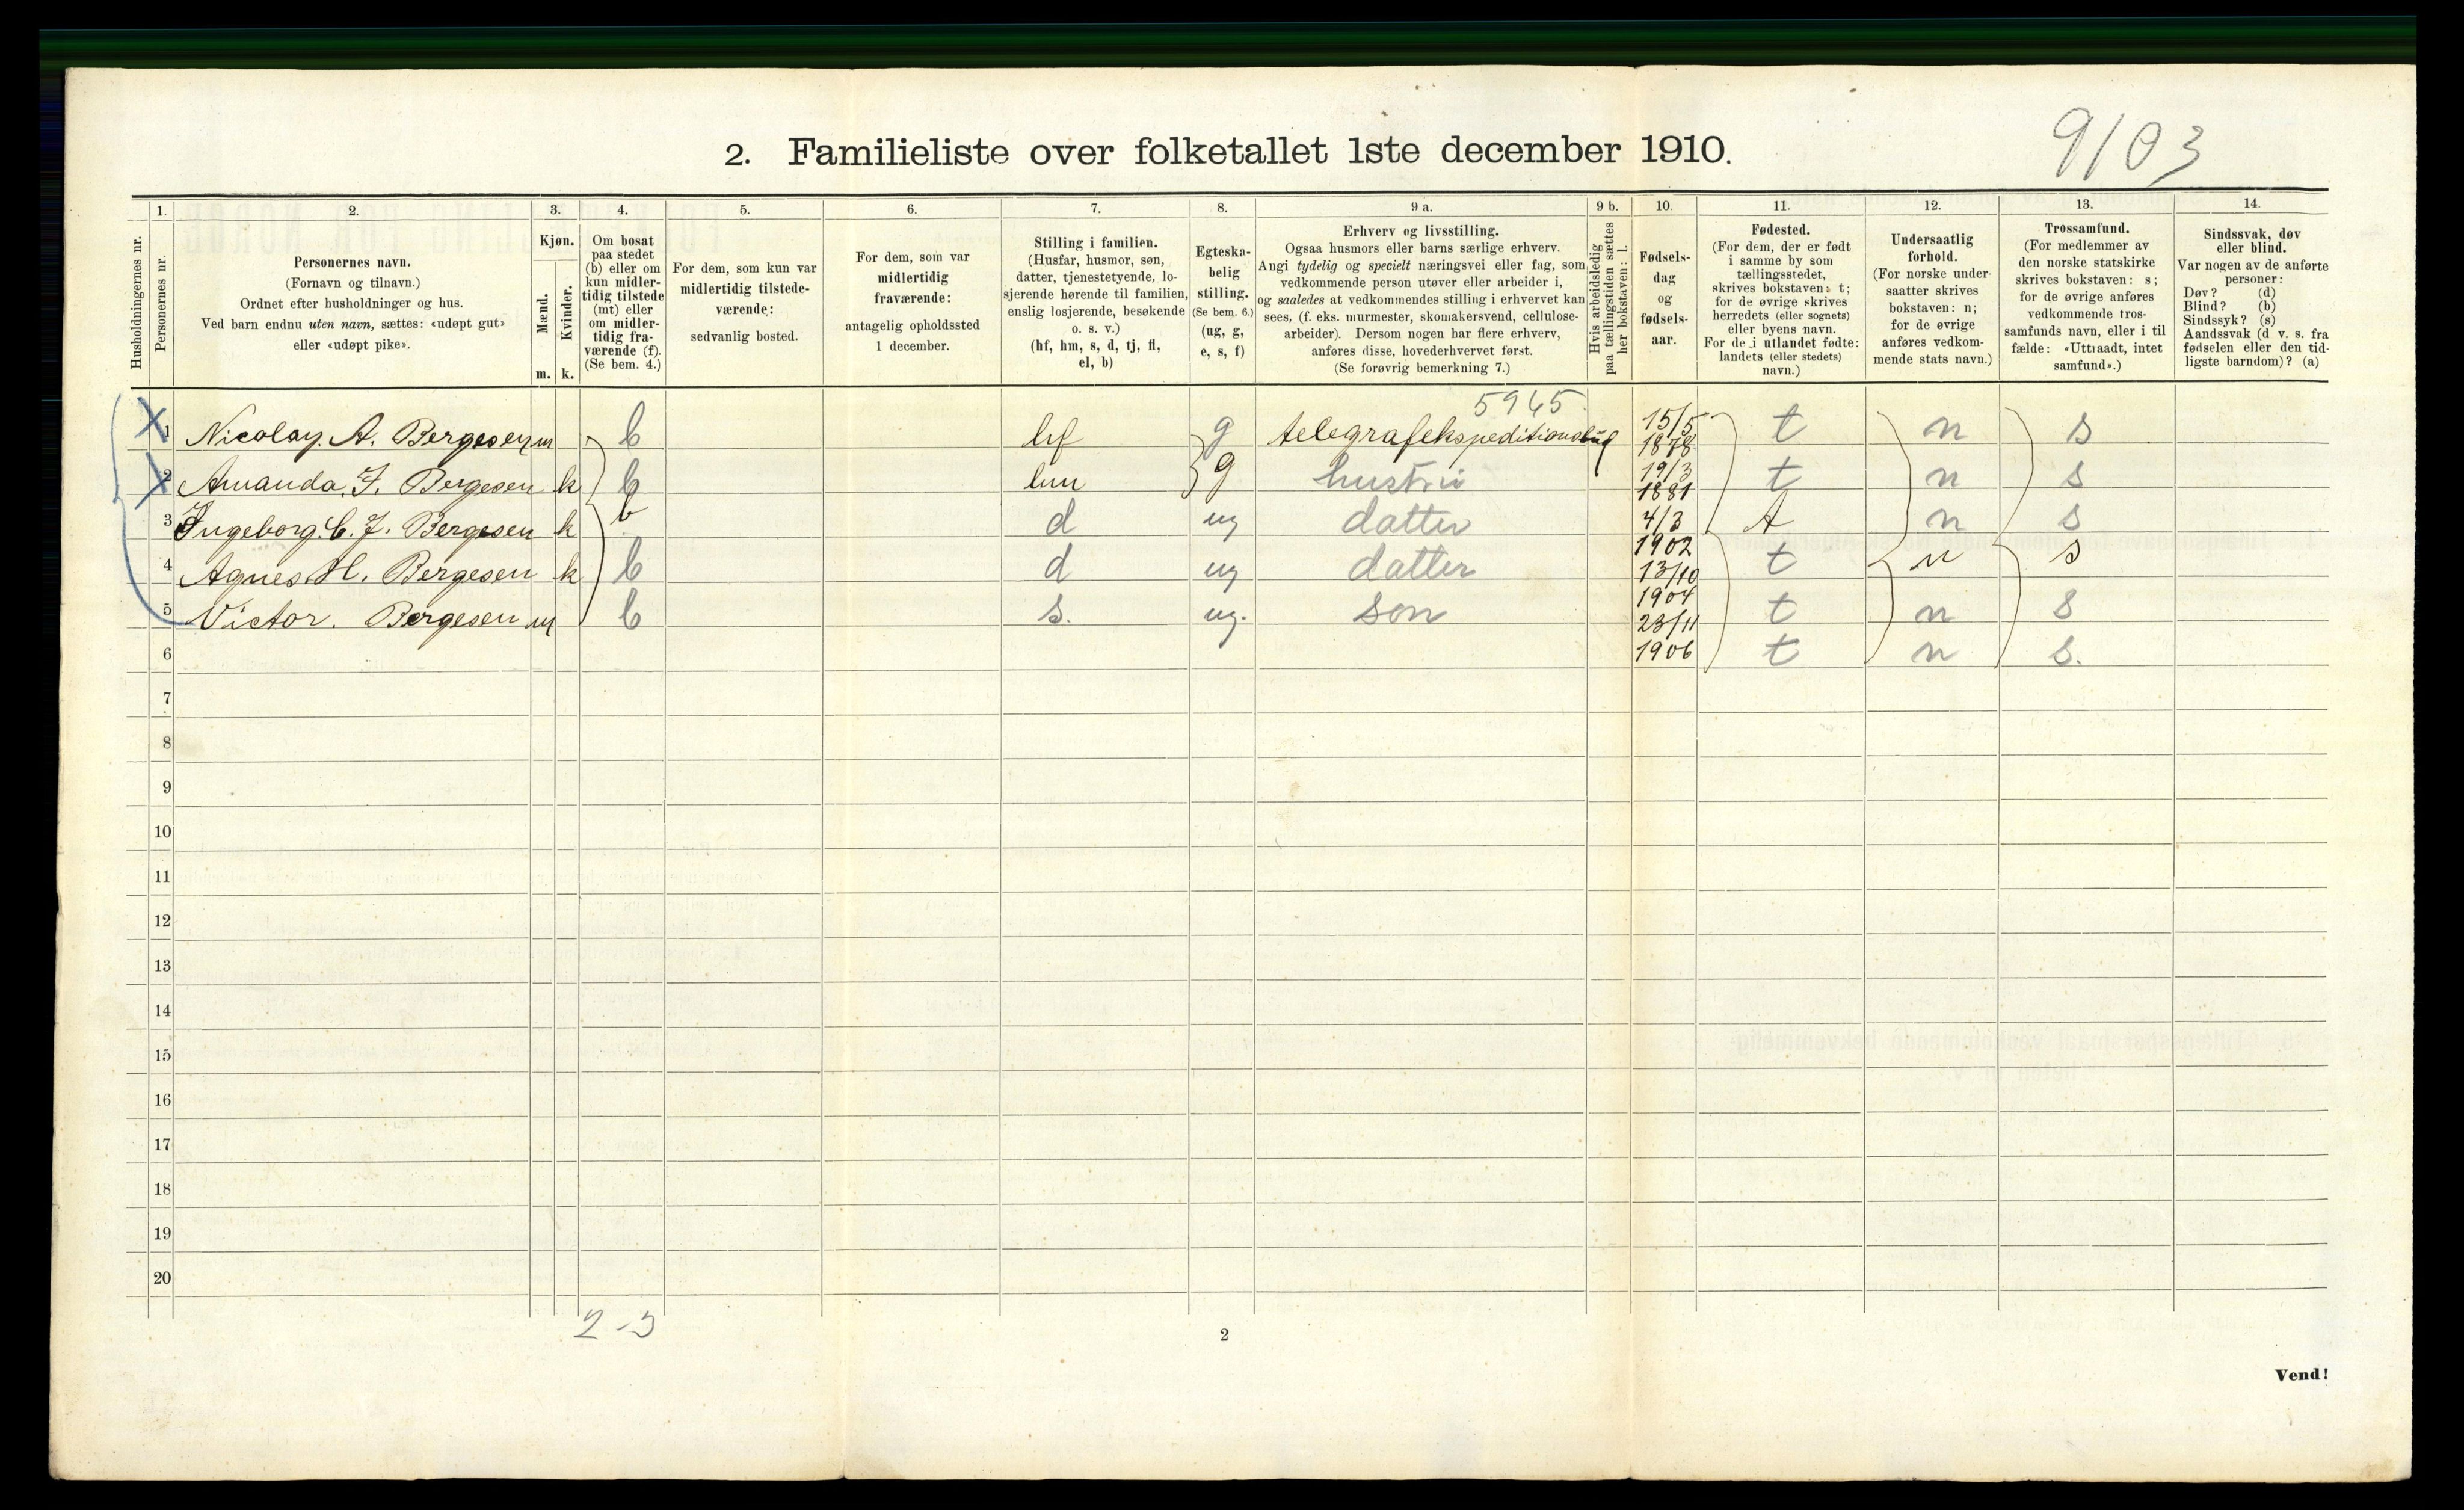 9103
2. Familieliste over folketallet 1ste december 1910.
1. 2. 3. 4. 5. 6. 7. 8. 9 a. 9 b. 10. 11. 12. 13. 14.
Husholdningernes nr.
Personernes nr.
Personernes navn.
(Fornavn og tilnavn.)
Ordnet efter husholdninger og hus.
Ved barn endnu uten navn, sættes: «udøpt gut»
eller «udøpt pike».
Kjøn.
Mænd.
Kvinder.
m. k.
Om bosat
paa stedet
(b) eller om
kun midler-
tidig tilstede
(mt) eller
om midler-
tidig fra-
værende (f).
(Se bem. 4.)
For dem, som kun var
midlertidig tilstede-
værende:
sedvanlig bosted.
For dem, som var
midlertidig
fraværende:
antagelig opholdssted
1 december.
Stilling i familien.
(Husfar, husmor, søn,
datter, tjenestetyende, lo-
sjerende hørende til familien,
enslig losjerende, besøkende
o. s. v.)
(hf, hm, s, d, tj, fl,
el, b)
Egteska-
belig
stilling.
(Se bem. 6.)
(ug, g,
e, s, f)
Erhverv og livsstilling.
Ogsaa husmors eller barns særlige erhverv.
Angi tydelig og specielt næringsvei eller fag, som
vedkommende person utøver eller arbeider i,
og saaledes at vedkommendes stilling i erhvervet kan
sees, (f. eks. murmester, skomakersvend, cellulose-
arbeider). Dersom nogen har flere erhverv,
anføres disse, hovederhvervet først.
(Se forøvrig bemerkning 7.)
Hvis arbeidsledig
paa tællingstiden sættes
her bokstaven: l.
Fødsels-
dag
og
fødsels-
aar.
Fødested.
(For dem, der er født
i samme by som
tællingsstedet,
skrives bokstaven: t;
for de øvrige skrives
herredets (eller sognets)
eller byens navn.
For de i utlandet fødte:
landets (eller stedets)
navn.)
Undersaatlig
forhold.
(For norske under-
saatter skrives
bokstaven: n;
for de øvrige
anføres vedkom-
mende stats navn.)
Trossamfund.
(For medlemmer av
den norske statskirke
skrives bokstaven: s;
for de øvrige anføres
vedkommende tros-
samfunds navn, eller i til
fælde: «Uttraadt, intet
samfund».)
Sindssvak, døv
eller blind.
Var nogen av de anførte
personer:
Døv? (d)
Blind? (b)
Sindssyk? (s)
Aandssvak (d v. s. fra
fødselen eller den tid-
ligste barndom)? (a)
5945
1 Nicolay. A. Bergesen m b hf g 15/5 1878 t n s
2 Amanda. J. Bergesen k b hm g hustru 19/3 1881 t n s
3 Ingeborg. C. J. Bergesen k b d ug datter 4/3 1902 t n s
4 Agnes. H. Bergesen k b d ug datter 13/10 1904 t n s
5 Victor. Bergesen m b s. ug. son 23/11 t n s
6 1906 t n s.
7
8
9
10
11
12
13
14
15
16
17
18
19
20
2-3
2
Vend!